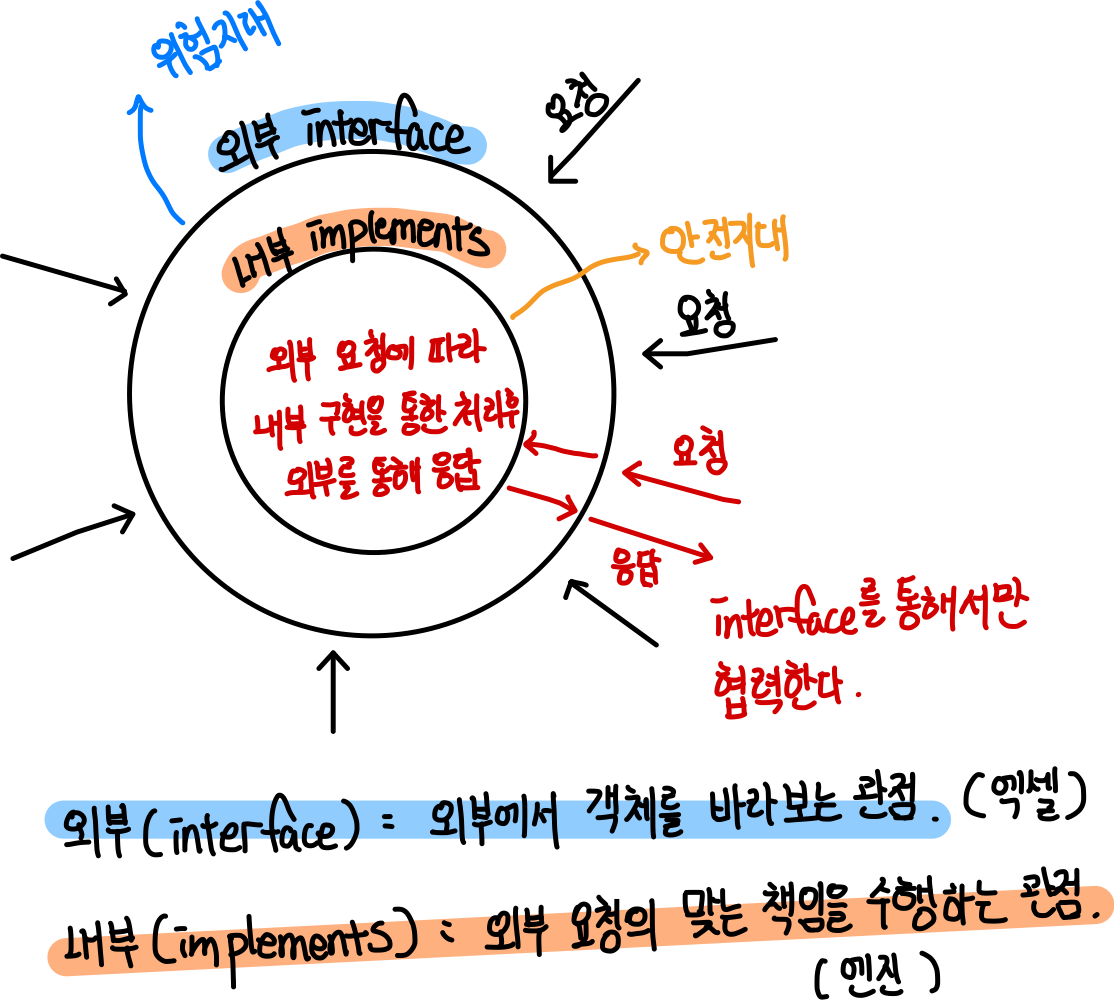 위험지대
요청
외부 interface
내부 implements
안전지대
요청
외부 요청에 따라
내부 구현을 통한 처리후
외부를 통해 응답
요청
응답
interface를 통해서만
협력한다.
외부(interface) = 외부에서 객체를 바라보는 관점. (엑셀)
내부(implements) = 외부 요청의 맞는 책임을 수행하는 관점.
(엔진)